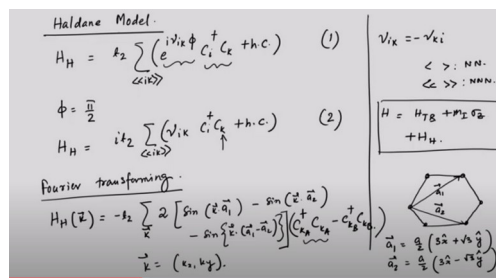 Haldane Model.
H_H = t₂ Σ_{<<ik>>} (e^{iν_{ik}φ} c_i† c_k + h.c.) (1)
φ = π/2
H_H = it₂ Σ_{<<ik>>} (ν_{ik} c_i† c_k + h.c.) (2)
Fourier transforming.
H_H(k⃗) = -t₂ Σ_{k⃗} 2 [sin(k⃗·a⃗₁) - sin(k⃗·a⃗₂)
- sin{k⃗·(a⃗₁-a⃗₂)}] (c†_{kA} c_{kA} - c†_{kB} c_{kB})
k⃗ = (kx, ky).
ν_{ik} = -ν_{ki}
< > : NN.
<< >> : NNN.
H = H_{TB} + m_I σ_z
+ H_H.
a⃗₁
a⃗₂
a⃗₁ = a/2 (3x̂ + √3 ŷ)
a⃗₂ = a/2 (3x̂ - √3 ŷ)